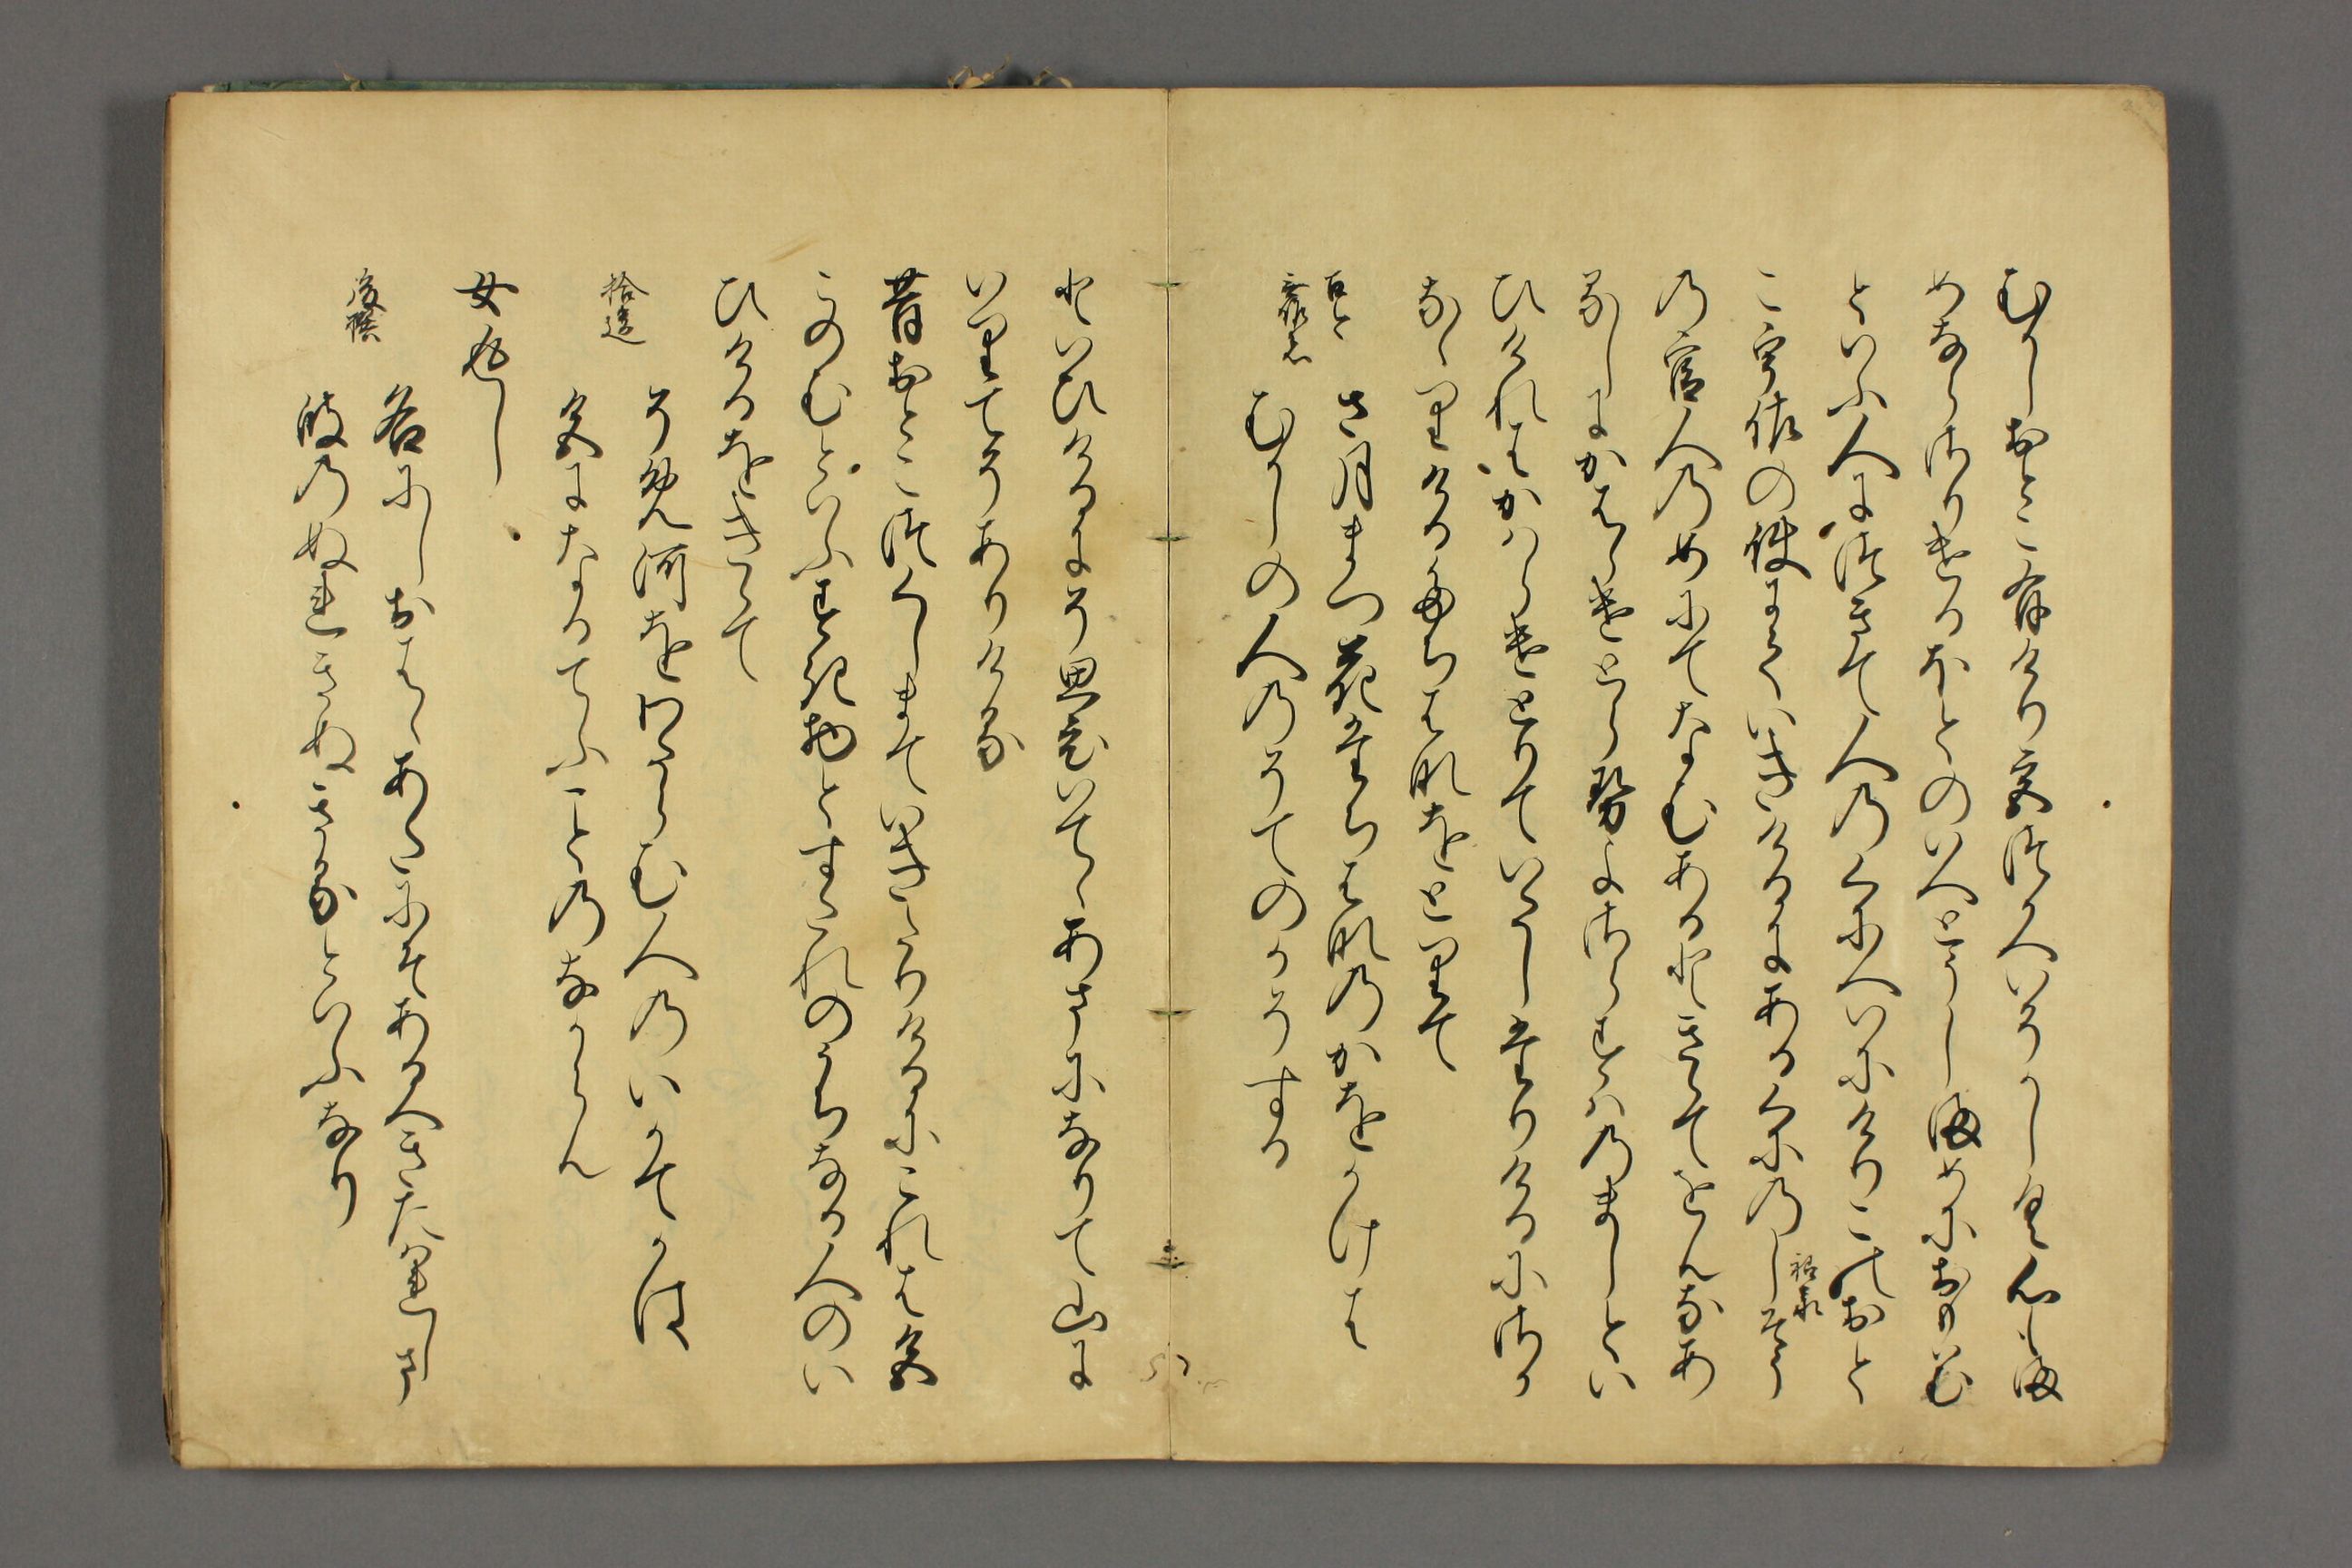 むかしおとこ有けり宮つかへいそかしく心もま
めならさりけるほとのいへとうしまめにおもはむ
といふ人につきて人のくにへいにけりこのおと
こ宇佐の使にていきけるにあるくにのしそう
祇承
の官人のめにてなむあるときゝてをんなあ
るしにかはらけとらせよさらすはのましとい
ひけれはかはらけとりていたしたりけるにさか
なゝりけるたちはなをとりて
古今
さ月まつ花たちはなのかをかけは
むかしの人のそてのかそする
といひけるにそ思いてゝあまになりて山に
いりてそありける
昔おとこつくしまていきたりけるにこれは色
このむといふすき物とすたれのうちなる人のい
ひけるをきゝて
拾遺
そめ河をわたらむ人のいかてかは
色になるてふことのなからん
女返し
後撰
名にしおはゝあたにそあるへきたはれしま
浪のぬれきぬきるといふなり